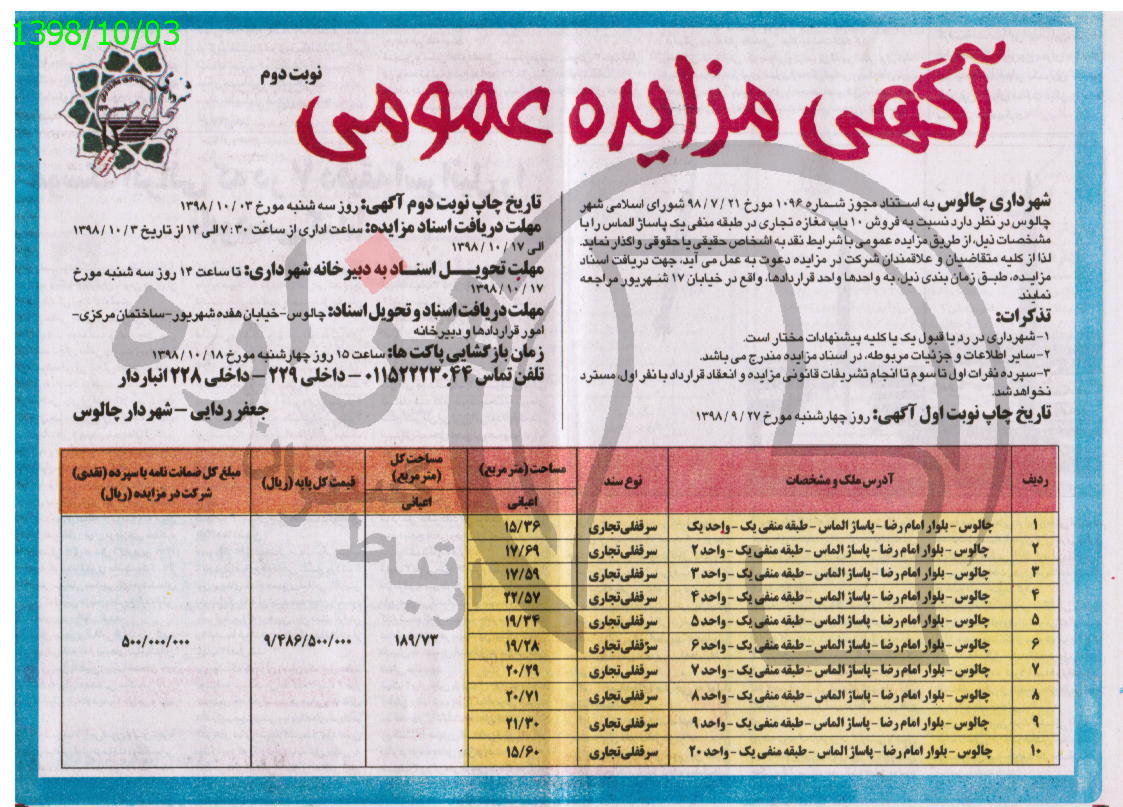 1398/10/03
نوبت دوم
آگهی مزایده عمومی
شهرداری چالوس به استناد مجوز شماره ۱۰۹۶ مورخ ۹۸/۷/۲۱ شورای اسلامی شهر
چالوس در نظر دارد نسبت به فروش ۱۰ باب مغازه تجاری در طبقه منفی یک پاساژ الماس را با
مشخصات ذیل، از طریق مزایده عمومی با شرایط نقد به اشخاص حقیقی یا حقوقی واگذار نماید.
لذا از کلیه متقاضیان و علاقمندان شرکت در مزایده دعوت به عمل می آید، جهت دریافت اسناد
مزایده، طبق زمان بندی ذیل، به واحدها واحد قراردادها، واقع در خیابان ۱۷ شهریور مراجعه
نمایند
تذکرات:
۱-شهرداری در رد یا قبول یک یا کلیه پیشنهادات مختار است.
۲-سایر اطلاعات و جزئیات مربوطه، در اسناد مزایده مندرج می باشد.
۳-سپرده نفرات اول تا سوم تا انجام تشریفات قانونی مزایده و انعقاد قرارداد با نفر اول، مسترد
نخواهد شد.
تاریخ چاپ نوبت اول آگهی: روز چهارشنبه مورخ ۱۳۹۸/۹/۲۷
تاریخ چاپ نوبت دوم آگهی: روز سه شنبه مورخ ۱۳۹۸/۱۰/۰۳
مهلت دریافت اسناد مزایده: ساعت اداری از ساعت ۷:۳۰ الی ۱۴ از تاریخ ۱۳۹۸/۱۰/۳
الی ۱۳۹۸/۱۰/۱۷
مهلت تحویل اسناد به دبیرخانه شهرداری: تا ساعت ۱۴ روز سه شنبه مورخ
۱۳۹۸/۱۰/۱۷
مهلت دریافت اسناد و تحویل اسناد: چالوس-خیابان هفده شهریور-ساختمان مرکزی-
امور قراردادها و دبیرخانه
زمان بازگشایی پاکت ها: ساعت ۱۵ روز چهارشنبه مورخ ۱۳۹۸/۱۰/۱۸
تلفن تماس ۰۱۱۵۲۲۲۳۰۴۴ - داخلی ۲۲۹ - داخلی ۲۲۸ انباردار
جعفر ردایی - شهردار چالوس
ردیف آدرس ملک و مشخصات نوع سند مساحت (متر مربع) اعیانی مساحت کل (متر مربع) اعیانی قیمت کل پایه (ریال) مبلغ کل ضمانت نامه یا سپرده (نقدی) شرکت در مزایده (ریال)
۱ چالوس - بلوار امام رضا - پاساژ الماس - طبقه منفی یک - واحد یک سرقفلی تجاری ۱۵/۳۶
۲ چالوس - بلوار امام رضا - پاساژ الماس - طبقه منفی یک - واحد ۲ سرقفلی تجاری ۱۷/۶۹
۳ چالوس - بلوار امام رضا - پاساژ الماس - طبقه منفی یک - واحد ۳ سرقفلی تجاری ۱۷/۵۹
۴ چالوس - بلوار امام رضا - پاساژ الماس - طبقه منفی یک - واحد ۴ سرقفلی تجاری ۲۲/۵۷
۵ چالوس - بلوار امام رضا - پاساژ الماس - طبقه منفی یک - واحد ۵ سرقفلی تجاری ۱۹/۳۴
۶ چالوس - بلوار امام رضا - پاساژ الماس - طبقه منفی یک - واحد ۶ سرقفلی تجاری ۱۹/۲۸ ۱۸۹/۷۳ ۹/۴۸۶/۵۰۰/۰۰۰ ۵۰۰/۰۰۰/۰۰۰
۷ چالوس - بلوار امام رضا - پاساژ الماس - طبقه منفی یک - واحد ۷ سرقفلی تجاری ۲۰/۲۹
۸ چالوس - بلوار امام رضا - پاساژ الماس - طبقه منفی یک - واحد ۸ سرقفلی تجاری ۲۰/۷۱
۹ چالوس - بلوار امام رضا - پاساژ الماس - طبقه منفی یک - واحد ۹ سرقفلی تجاری ۲۱/۳۰
۱۰ چالوس - بلوار امام رضا - پاساژ الماس - طبقه منفی یک - واحد ۲۰ سرقفلی تجاری ۱۵/۶۰